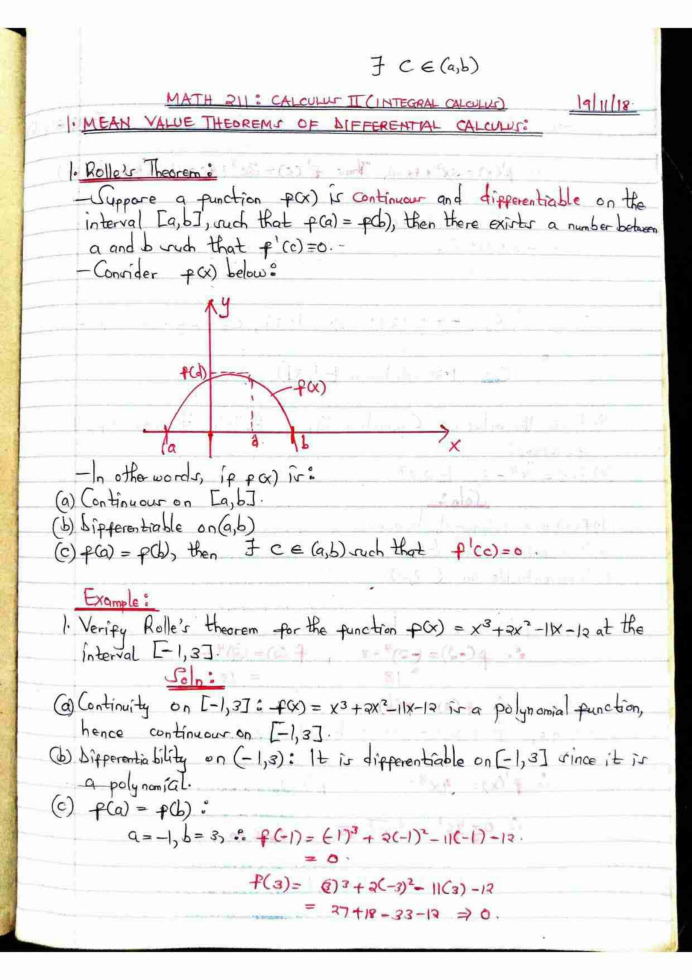 ∃ c ∈ (a,b)
MATH 211: CALCULUS II (INTEGRAL CALCULUS) 19/11/18.
1. MEAN VALUE THEOREMS OF DIFFERENTIAL CALCULUS:
1. Rolle's Theorem:
- Suppose a function f(x) is continuous and differentiable on the
interval [a,b], such that f(a) = f(b), then there exists a number between
a and b such that f'(c)=0. -
- Consider f(x) below:
y
f(d)
f(x)
a d b x
- In other words, if f(x) is:
(a) Continuous on [a,b].
(b) Differentiable on (a,b)
(c) f(a) = f(b), then ∃ c ∈ (a,b) such that f'(c)=0.
Example:
1. Verify Rolle's theorem for the function f(x) = x³+2x²-11x-12 at the
interval [-1,3].
Soln:
(a) Continuity on [-1,3]: f(x) = x³+2x²-11x-12 is a polynomial function,
hence continuous on [-1,3].
(b) Differentiability on (-1,3): It is differentiable on [-1,3] since it is
a polynomial.
(c) f(a) = f(b):
a=-1, b=3, ∴ f(-1) = (-1)³ + 2(-1)² - 11(-1) - 12.
= 0.
f(3) = (3)³ + 2(-3)² - 11(3) - 12
= 27+18-33-12 ⇒ 0.